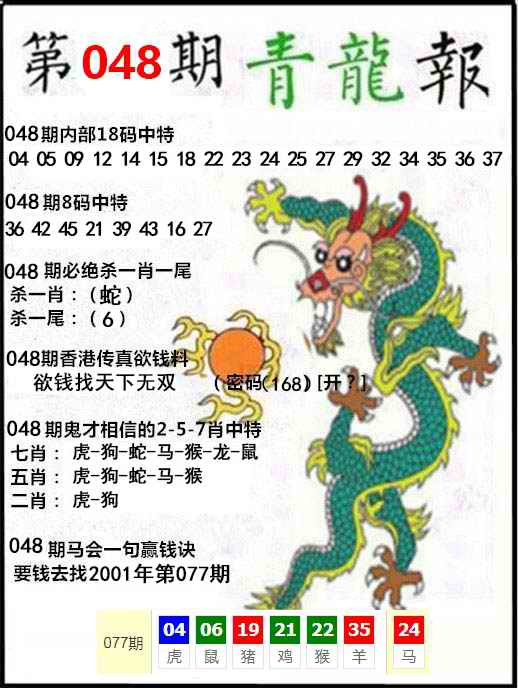 第048期青龍報
048期内部18码中特
04 05 09 12 14 15 18 22 23 24 25 27 29 32 34 35 36 37
048期8码中特
36 42 45 21 39 43 16 27
048期必绝杀一肖一尾
杀一肖：（蛇）
杀一尾：（6）
048期香港传真欲钱料
欲钱找天下无双 （密码(168) [开？]
048期鬼才相信的2-5-7肖中特
七肖： 虎-狗-蛇-马-猴-龙-鼠
五肖： 虎-狗-蛇-马-猴
二肖： 虎-狗
048期马会一句赢钱诀
要钱去找2001年第077期
077期 04 06 19 21 22 35 24
虎 鼠 猪 鸡 猴 羊 马